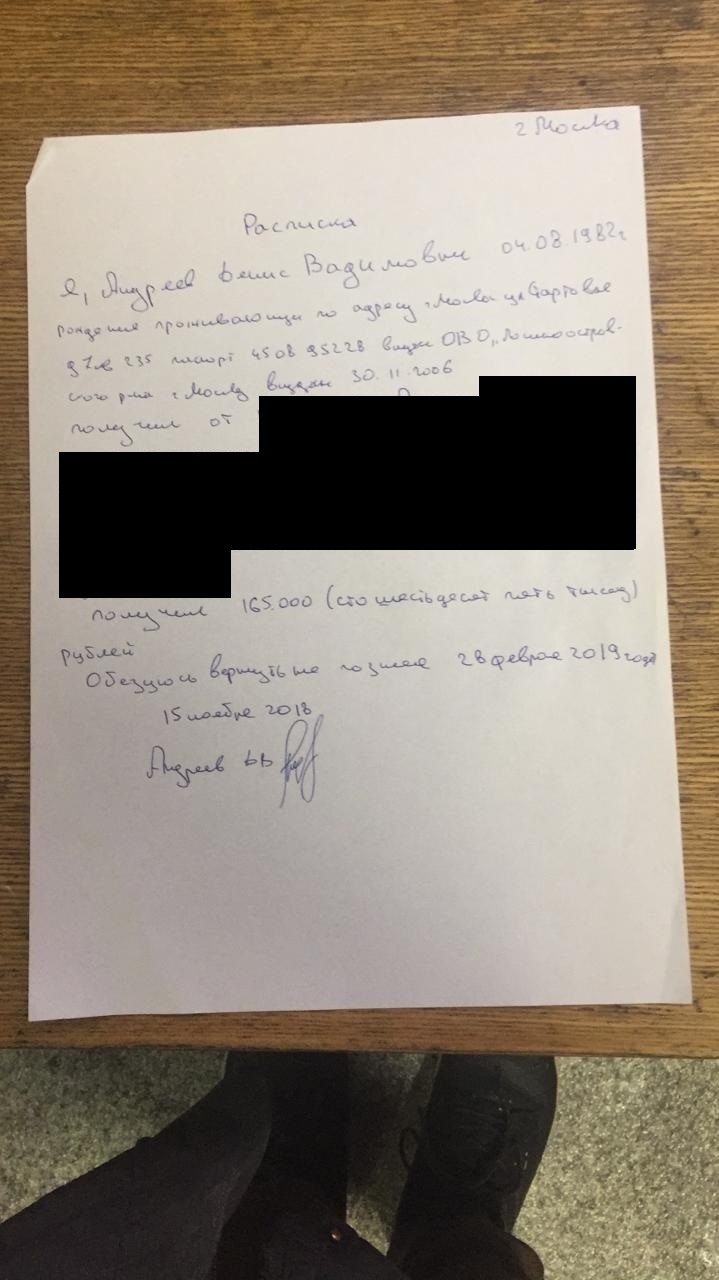 г Москва
Расписка
Я, Андреев Денис Вадимович 04.08.1982г
рождения проживающий по адресу г Москва ул Стартовая
кв 235 паспорт 4508 выдан ОВД „Лосиноостров-
ского р-на г Москвы выдан 30.11.2006
получил от
получил 165.000 (сто шестьдесят пять тысяч)
рублей
Обязуюсь вернуть не позднее 28 февраля 2019 года
15 ноября 2018
Андреев ДВ